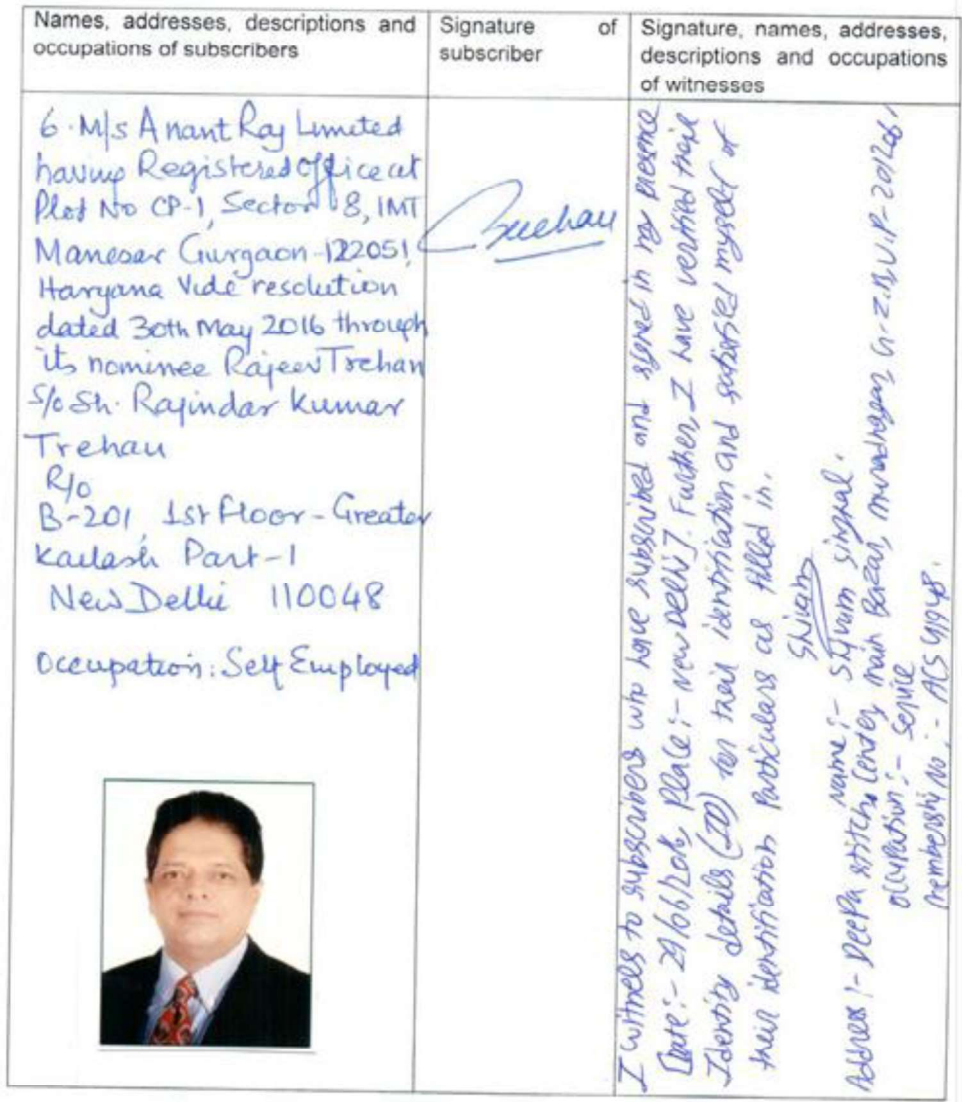 Names, addresses, descriptions and
occupations of subscribers
Signature of
subscriber
Signature, names, addresses,
descriptions and occupations
of witnesses
6. M/s Anant Raj Limited
having Registered office at
Plot No CP-1, Sector 8, IMT
Manesar Gurgaon-122051
Haryana Vide resolution
dated 30th May 2016 through
its nominee Rajeev Trehan
S/o Sh. Rajindar Kumar
Trehan
R/o
B-201, 1st Floor-Greater
Kailash Part-1
New Delhi 110048
Occupation: Self Employed
Trehan
I witness to subscribers who have subscribed and signed in my presence
[Date:- 21/06/2016, Place:- New Delhi]. Further, I have verified their
Identity details (ID) for their identification and satisfied myself of
their identification Particulars as filled in.
Shivam
Name:- Shivam Singhal.
Address:- Deepa stitch Center, main Bazar, muradnagar, GZB, U.P-201206,
occupation:- Service
Membership No:- ACS